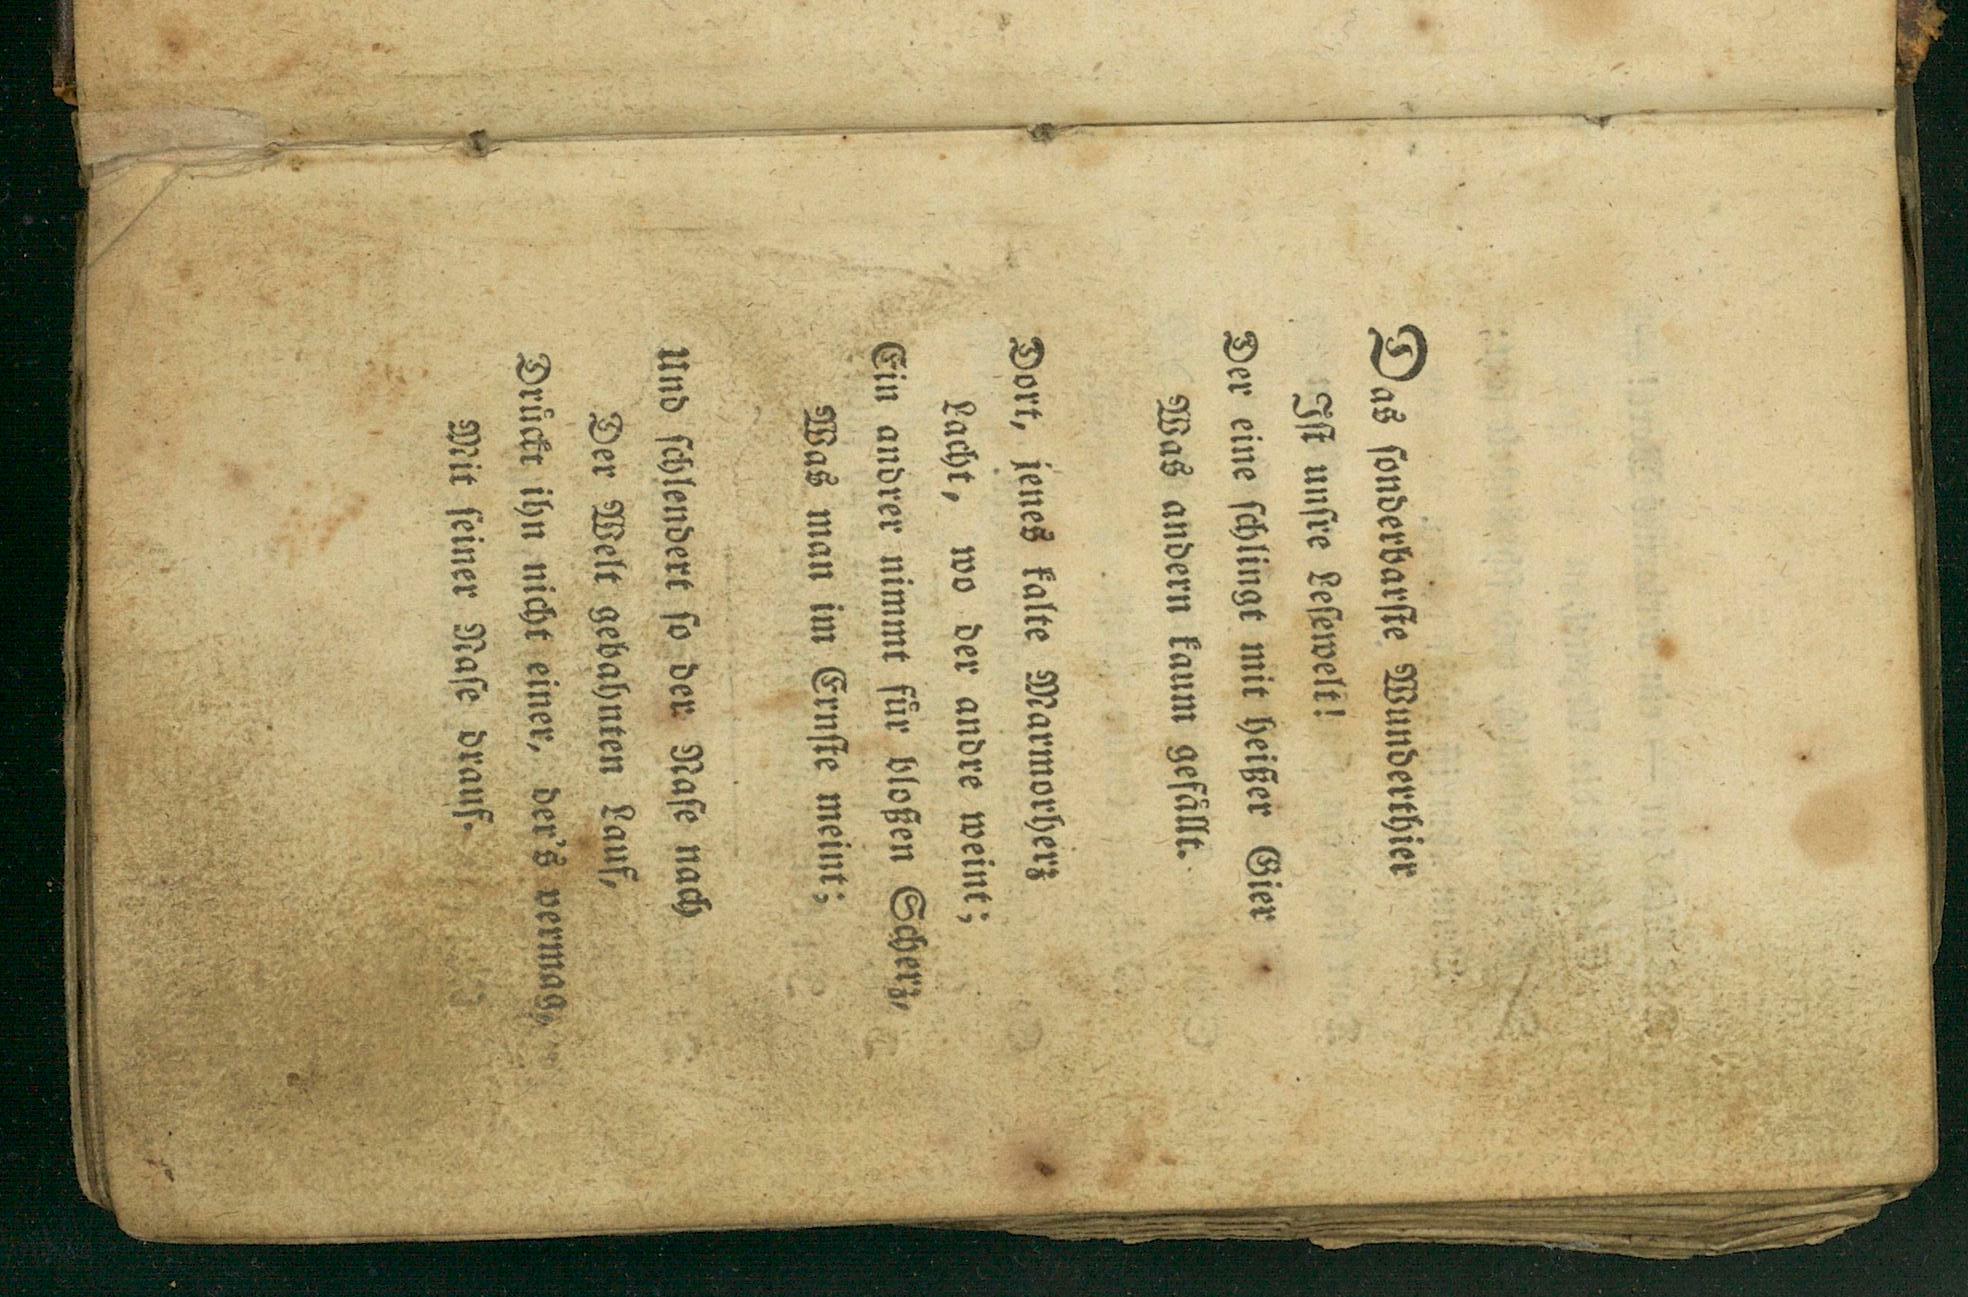 Das ſonderbarſte Wunderthier
Iſt unſre Leſewelt!
Der eine ſchlingt mit heißer Gier
Was andern kaum gefällt.
Dort, jenes kalte Marmorherz
Lacht, wo der andre weint;
Ein andrer nimmt für bloßen Scherz,
Was man im Ernſte meint;
Und ſchlendert ſo der Naſe nach
Der Welt gebahnten Lauf,
Drückt ihn nicht einer, der's vermag,
Mit ſeiner Naſe drauf.